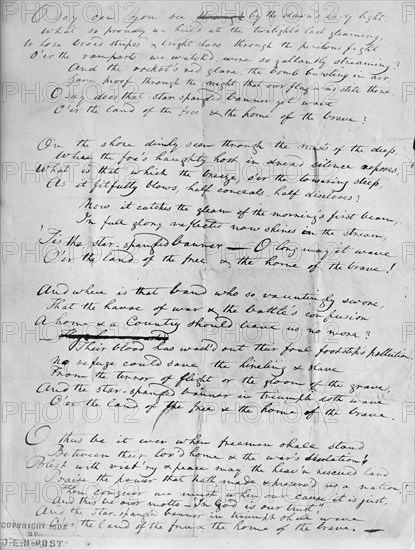 O say can you see ~~through~~ by the dawn's early light
What so proudly we hail'd at the twilight's last gleaming,
Whose broad stripes & bright stars through the perilous fight
O'er the ramparts we watch'd, were so gallantly streaming?
And the rocket's red glare, the bomb bursting in air,
Gave proof through the night that our flag was still there
O say does that star-spangled banner yet wave
O'er the land of the free & the home of the brave?
On the shore dimly seen through the mists of the deep,
Where the foe's haughty host in dread silence reposes,
What is that which the breeze, o'er the towering steep,
As it fitfully blows, half conceals, half discloses?
Now it catches the gleam of the morning's first beam,
In full glory reflected now shines in the stream,
'Tis the star-spangled banner — O long may it wave
O'er the land of the free & the home of the brave!
And where is that band who so vauntingly swore,
That the havoc of war & the battle's confusion
A home & a Country should leave us no more?
Their blood has wash'd out their foul footstep's pollution
No refuge could save the hireling & slave
From the terror of flight or the gloom of the grave,
And the star-spangled banner in triumph doth wave
O'er the land of the free & the home of the brave.
O thus be it ever when freemen shall stand
Between their lov'd home & the war's desolation!
Blest with vict'ry & peace may the heav'n rescued land
Praise the power that hath made & preserv'd us a nation!
Then conquer we must, when our cause it is just,
And this be our motto - "In God is our trust,"
And the star-spangled banner in triumph shall wave
O'er the land of the free & the home of the brave. —
COPYRIGHT
BY
J.E.H. POST
PHOTO12